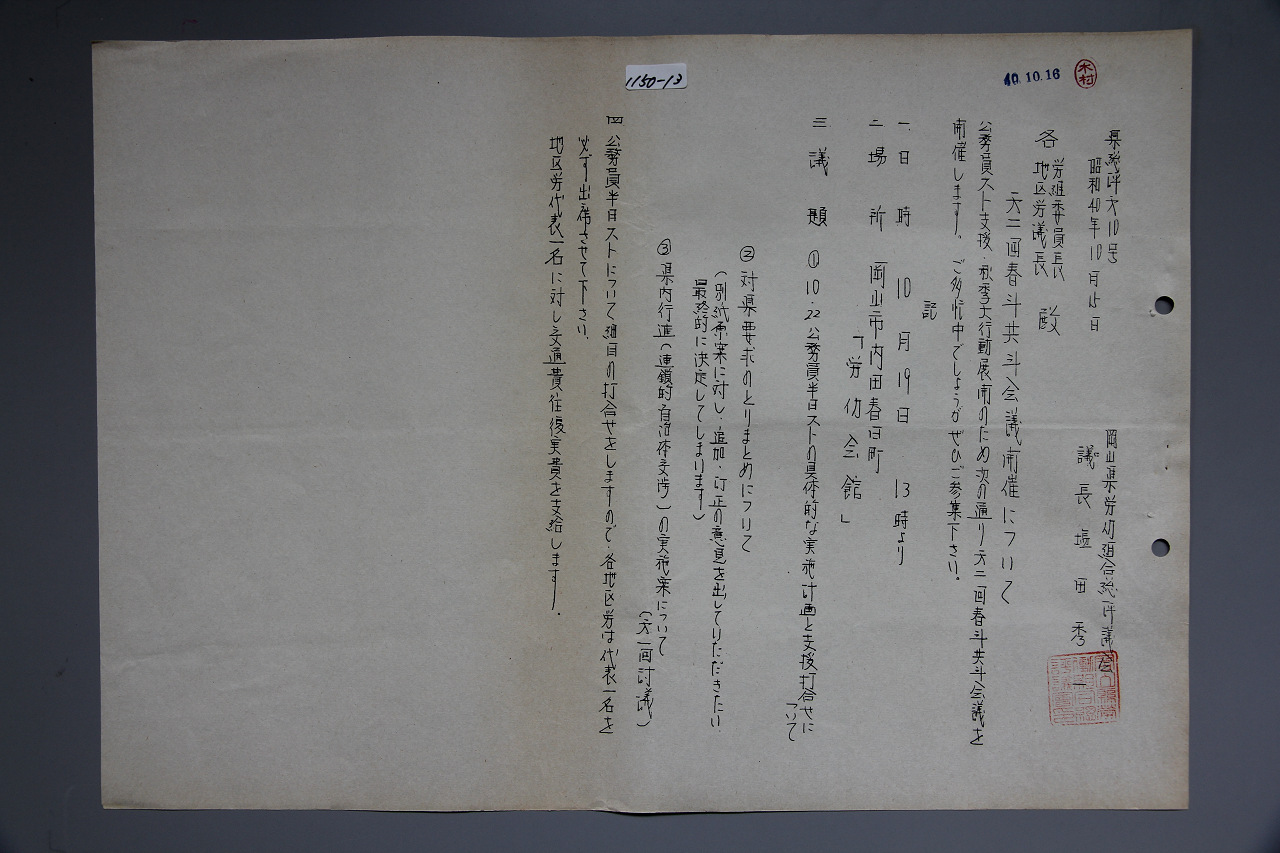 1150-13
40.10.16
木村
県総評第10号
昭和40年10月15日
岡山県労仂組合総評議会
議長 塩田秀一
各 労組委員長 地区労議長 殿
第二回春斗共斗会議開催について
公務員スト支援、秋季大行動展開のため次の通り第二回春斗共斗会議を
開催します。ご多忙中でしょうがぜひご参集下さい。
記
一、日時 10月19日 13時より
二 場所 岡山市内田春日町
「労仂会館」
三 議題 ① 10.22公務員半日ストの具体的な実施計画と支援打合せに
ついて
② 対県要求のとりまとめについて
(別紙原案に対し、追加、訂正の意見を出していただきたい
最終的に決定してしまります)
③ 県内行進(連鎖的自治体交渉)の実施案について
(第一回討議)
四 公務員半日ストについて細目の打合せをしますので、各地区労は代表一名を
必ず出席させて下さい。
地区労代表一名に対し交通費往復実費を支給します。